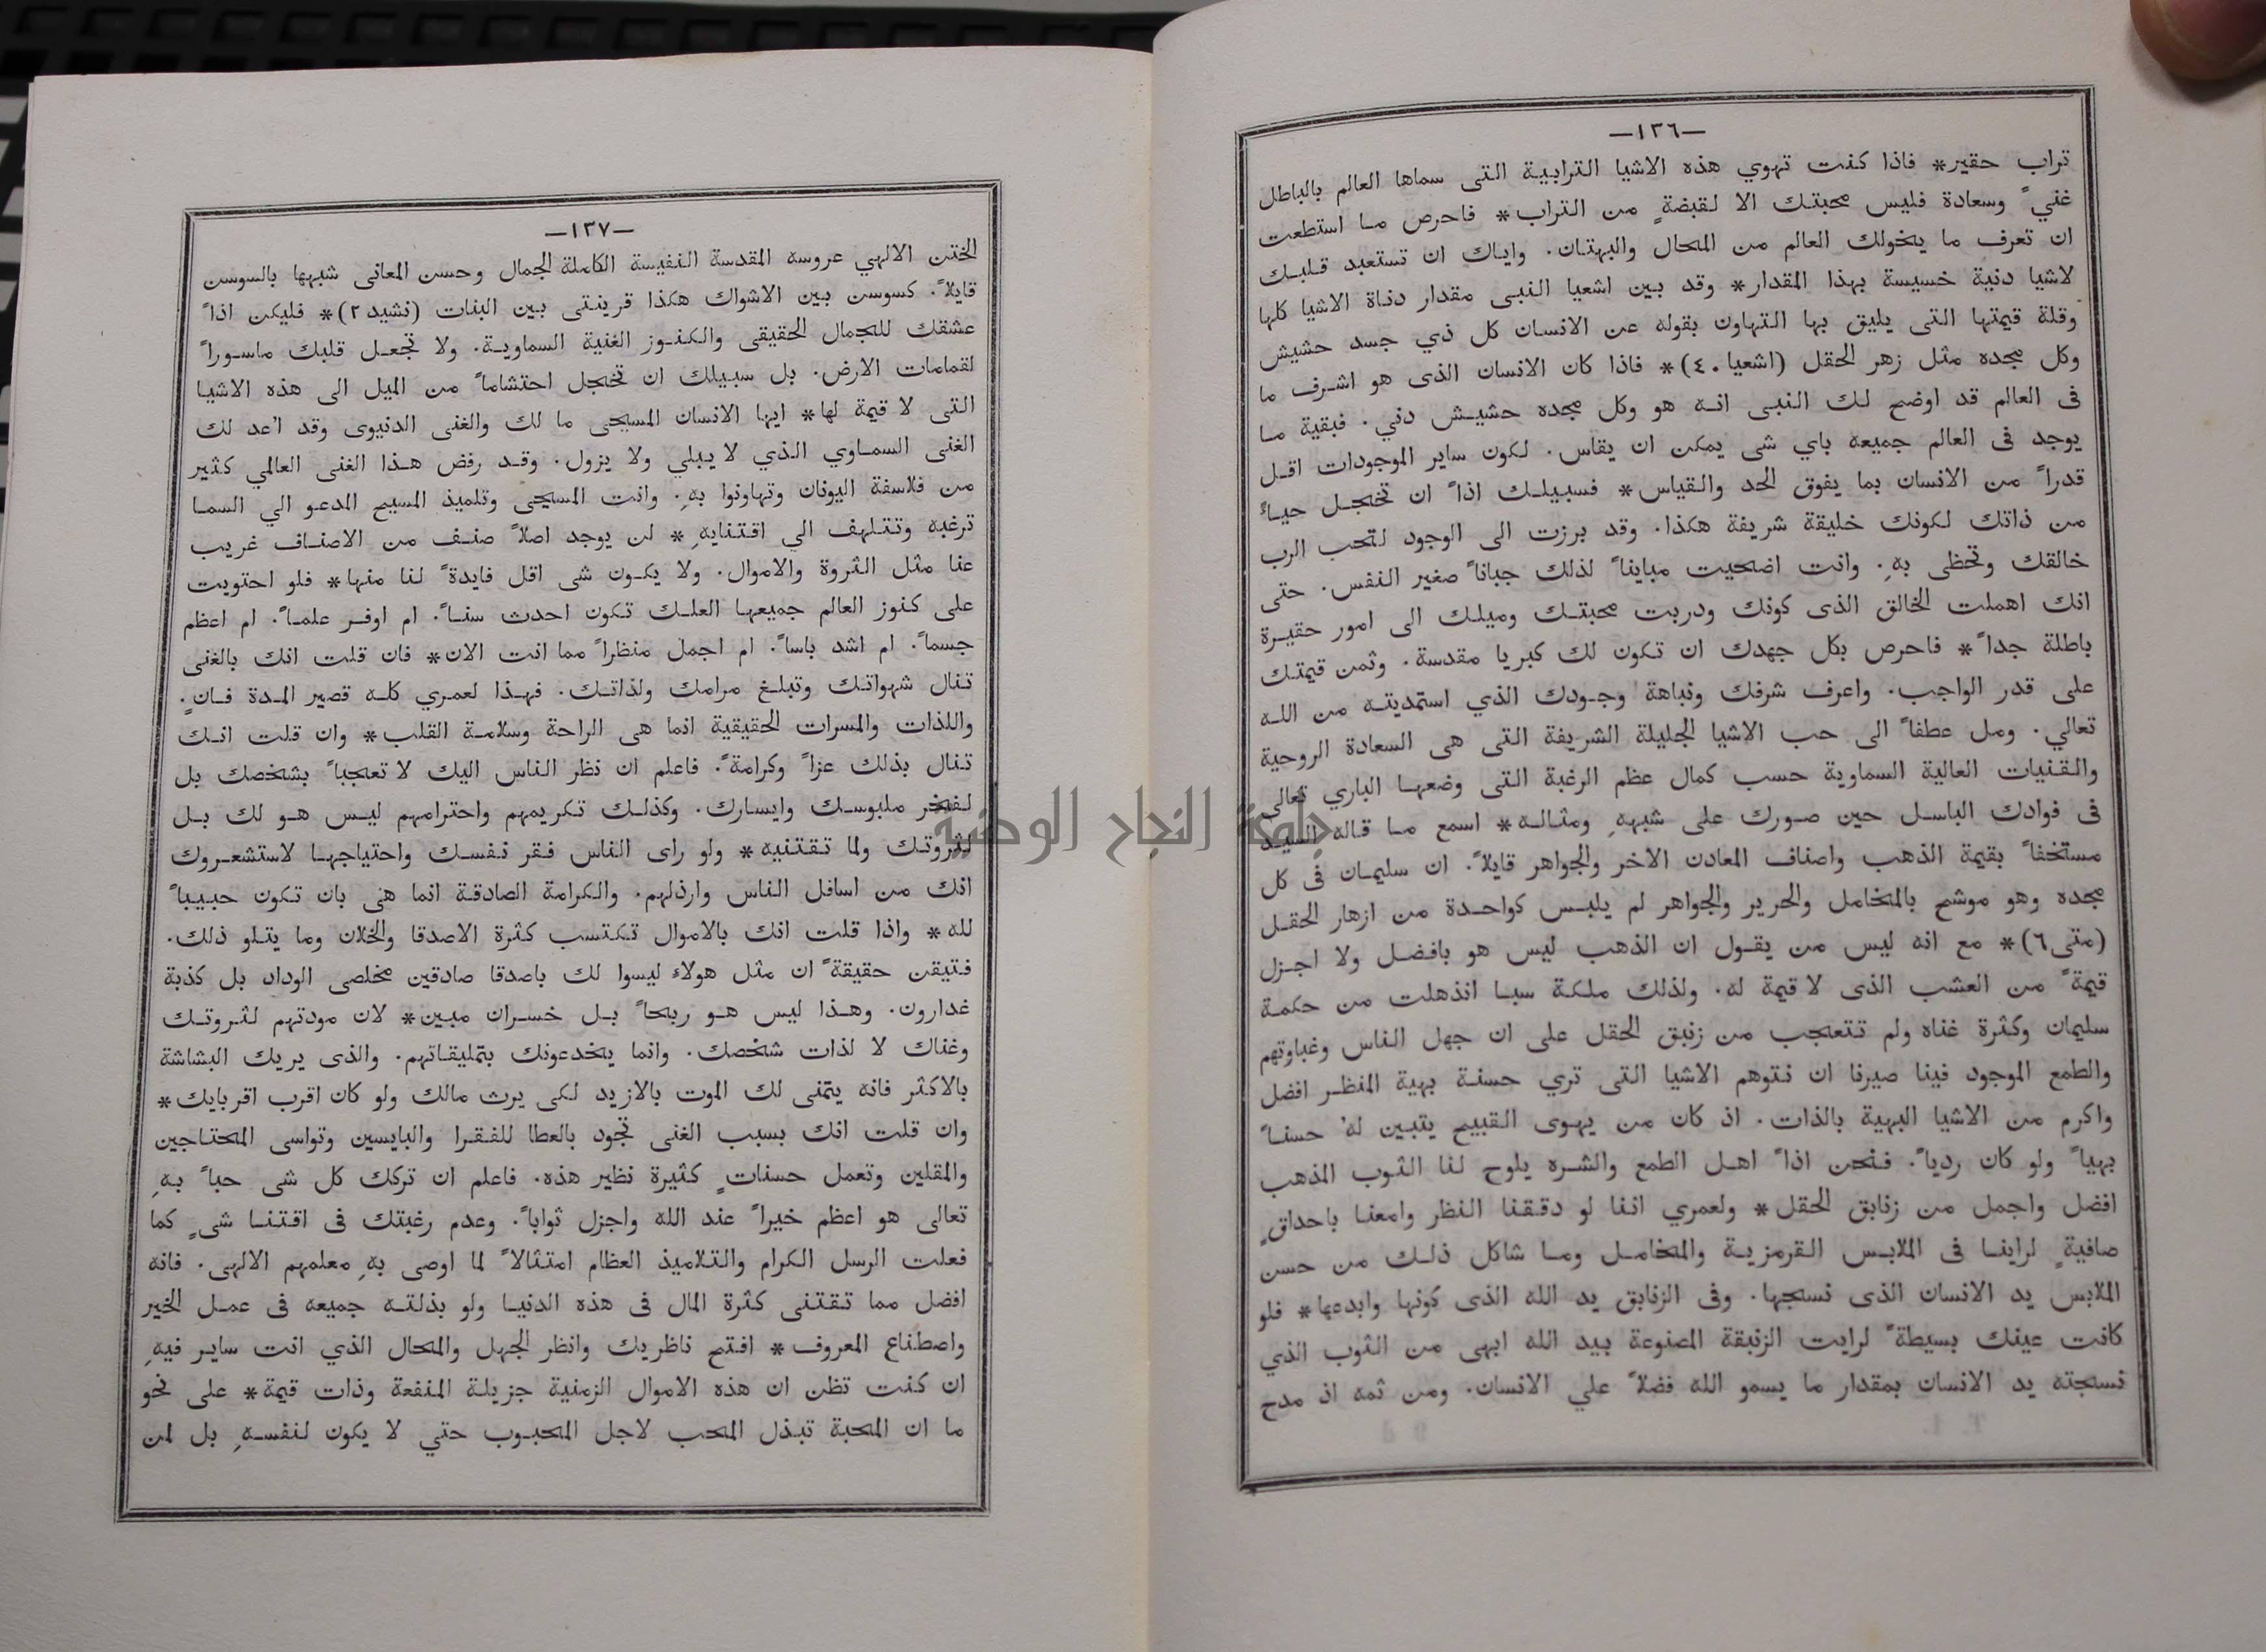 —١٣٦—
تراب حقير* فاذا كنت تهوي هذه الاشيا الترابية التى سماها العالم بالباطل
غنيً وسعادة فليس محبتك الا لقبضةٍ من التراب* فاحرص ما استطعت
ان تعرف ما يخولك العالم من المحال والبهتان. واياك ان تستعبد قلبك
لاشيا دنية خسيسة بهذا المقدار* وقد بين اشعيا النبى مقدار دناة الاشيا كلها
وقلة قيمتها التى يليق بها التهاون بقوله عن الانسان كل ذي جسد حشيش
وكل مجده مثل زهر الحقل (اشعيا ٤٠)* فاذا كان الانسان الذى هو اشرف ما
فى العالم قد اوضح لك النبى انه هو وكل مجده حشيش دني. فبقية ما
يوجد فى العالم جميعه باي شى يمكن ان يقاس. لكون ساير الموجودات اقل
قدراً من الانسان بما يفوق الحد والقياس* فسبيلك اذاً ان تخجل حياءً
من ذاتك لكونك خليقة شريفة هكذا. وقد برزت الى الوجود لتحب الرب
خالقك وتحظى بهِ. وانت اضحيت مبايناً لذلك جباناً صغير النفس. حتى
انك اهملت الخالق الذى كونك ودربت محبتك وميلك الى امور حقيرة
باطلة جداً* فاحرص بكل جهدك ان تكون لك كبريا مقدسة. وثمن قيمتك
على قدر الواجب. واعرف شرفك ونباهة وجودك الذي استمديته من الله
تعالي. ومل عطفاً الى حب الاشيا الجليلة الشريفة التى هى السعادة الروحية
والقنيات العالية السماوية حسب كمال عظم الرغبة التى وضعها الباري تعالى
فى فوادك الباسل حين صورك على شبههِ ومثاله* اسمع ما قاله السيد
مستخفاً بقيمة الذهب واصناف المعادن الاخر والجواهر قايلاً. ان سليمان فى كل
مجده وهو موشح بالمخامل والحرير والجواهر لم يلبس كواحدة من ازهار الحقل
(متى ٦)* مع انه ليس من يقول ان الذهب ليس هو بافضل ولا اجزل
قيمةً من العشب الذى لا قيمة له. ولذلك ملكة سبا انذهلت من حكمة
سليمان وكثرة غناه ولم تتعجب من زنبق الحقل على ان جهل الناس وغباوتهم
والطمع الموجود فينا صيرنا ان نتوهم الاشيا التى تري حسنة بهية المنظر افضل
واكرم من الاشيا البهية بالذات. اذ كان من يهوى القبيح يتبين لهُ حسناً
بهياً ولو كان ردياً. فنحن اذاً اهل الطمع والشره يلوح لنا الثوب المذهب
افضل واجمل من زنابق الحقل* ولعمري اننا لو دققنا النظر وامعنا باحداقٍ
صافيةٍ لراينا فى الملابس القرمزية والمخامل وما شاكل ذلك من حسن
الملابس يد الانسان الذى نسجها. وفى الزنابق يد الله الذى كونها وابدعها* فلو
كانت عينك بسيطةً لرايت الزنبقة المصنوعة بيد الله ابهى من الثوب الذي
نسجته يد الانسان بمقدار ما يسمو الله فضلاً علي الانسان. ومن ثمه اذ مدح
—١٣٧—
الختن الالهي عروسه المقدسة النفيسة الكاملة الجمال وحسن المعانى شبهها بالسوسن
قايلاً. كسوسن بين الاشواك هكذا قرينتى بين البنات (نشيد ٢)* فليكن اذاً
عشقك للجمال الحقيقى والكنوز الغنية السماوية. ولا تجعل قلبك ماسوراً
لقمامات الارض. بل سبيلك ان تخجل احتشاماً من الميل الى هذه الاشيا
التى لا قيمة لها* ايها الانسان المسيحى ما لك والغنى الدنيوى وقد اُعد لك
الغنى السماوي الذي لا يبلي ولا يزول. وقد رفض هذا الغنى العالمي كثير
من فلاسفة اليونان وتهاونوا بهِ. وانت المسيحى وتلميذ المسيح المدعو الي السما
ترغبه وتتلهف الى اقتنايهِ* لن يوجد اصلاً صنف من الاصناف غريب
عنا مثل الثروة والاموال. ولا يكون شى اقل فايدةً لنا منها* فلو احتويت
على كنوز العالم جميعها العلك تكون احدث سناً. ام اوفر علماً. ام اعظم
جسماً. ام اشد باساً. ام اجمل منظراً مما انت الان* فان قلت انك بالغنى
تنال شهواتك وتبلغ مرامك ولذاتك. فهذا لعمري كله قصير المدة فانٍ.
واللذات والمسرات الحقيقية انما هى الراحة وسلامة القلب* وان قلت انك
تنال بذلك عزاً وكرامةً. فاعلم ان نظر الناس اليك لا تعجباً بشخصك بل
لفخر ملبوسك وايسارك. وكذلك تكريمهم واحترامهم ليس هو لك بل
لثروتك ولما تقتنيه* ولو راى الناس فقر نفسك واحتياجها لاستشعروك
انك من اسافل الناس وارذلهم. والكرامة الصادقة انما هى بان تكون حبيباً
لله* واذا قلت انك بالاموال تكتسب كثرة الاصدقا والخلان وما يتلو ذلك.
فتيقن حقيقةً ان مثل هولاء ليسوا لك باصدقا صادقين مخلصى الوداد بل كذبة
غدارون. وهذا ليس هو ربحاً بل خسران مبين* لان مودتهم لثروتك
وغناك لا لذات شخصك. وانما يخدعونك بتمليقاتهم. والذى يريك البشاشة
بالاكثر فانه يتمنى لك الموت بالازيد لكى يرث مالك ولو كان اقرب اقربايك*
وان قلت انك بسبب الغنى تجود بالعطا للفقرا والبايسين وتواسى المحتاجين
والمقلين وتعمل حسناتٍ كثيرة نظير هذه. فاعلم ان تركك كل شى حباً بهِ
تعالى هو اعظم خيراً عند الله واجزل ثواباً. وعدم رغبتك فى اقتنا شىٍ كما
فعلت الرسل الكرام والتلاميذ العظام امتثالاً لما اوصى بهِ معلمهم الالهى. فانه
افضل مما تقتنى كثرة المال فى هذه الدنيا ولو بذلته جميعه فى عمل الخير
واصطناع المعروف* افتح ناظريك وانظر الجهل والمحال الذي انت ساير فيهِ
ان كنت تظن ان هذه الاموال الزمنية جزيلة المنفعة وذات قيمة* على نحو
ما ان المحبة تبذل المحب لاجل المحبوب حتي لا يكون لنفسهِ بل لمن
جامعة النجاح الوطنية